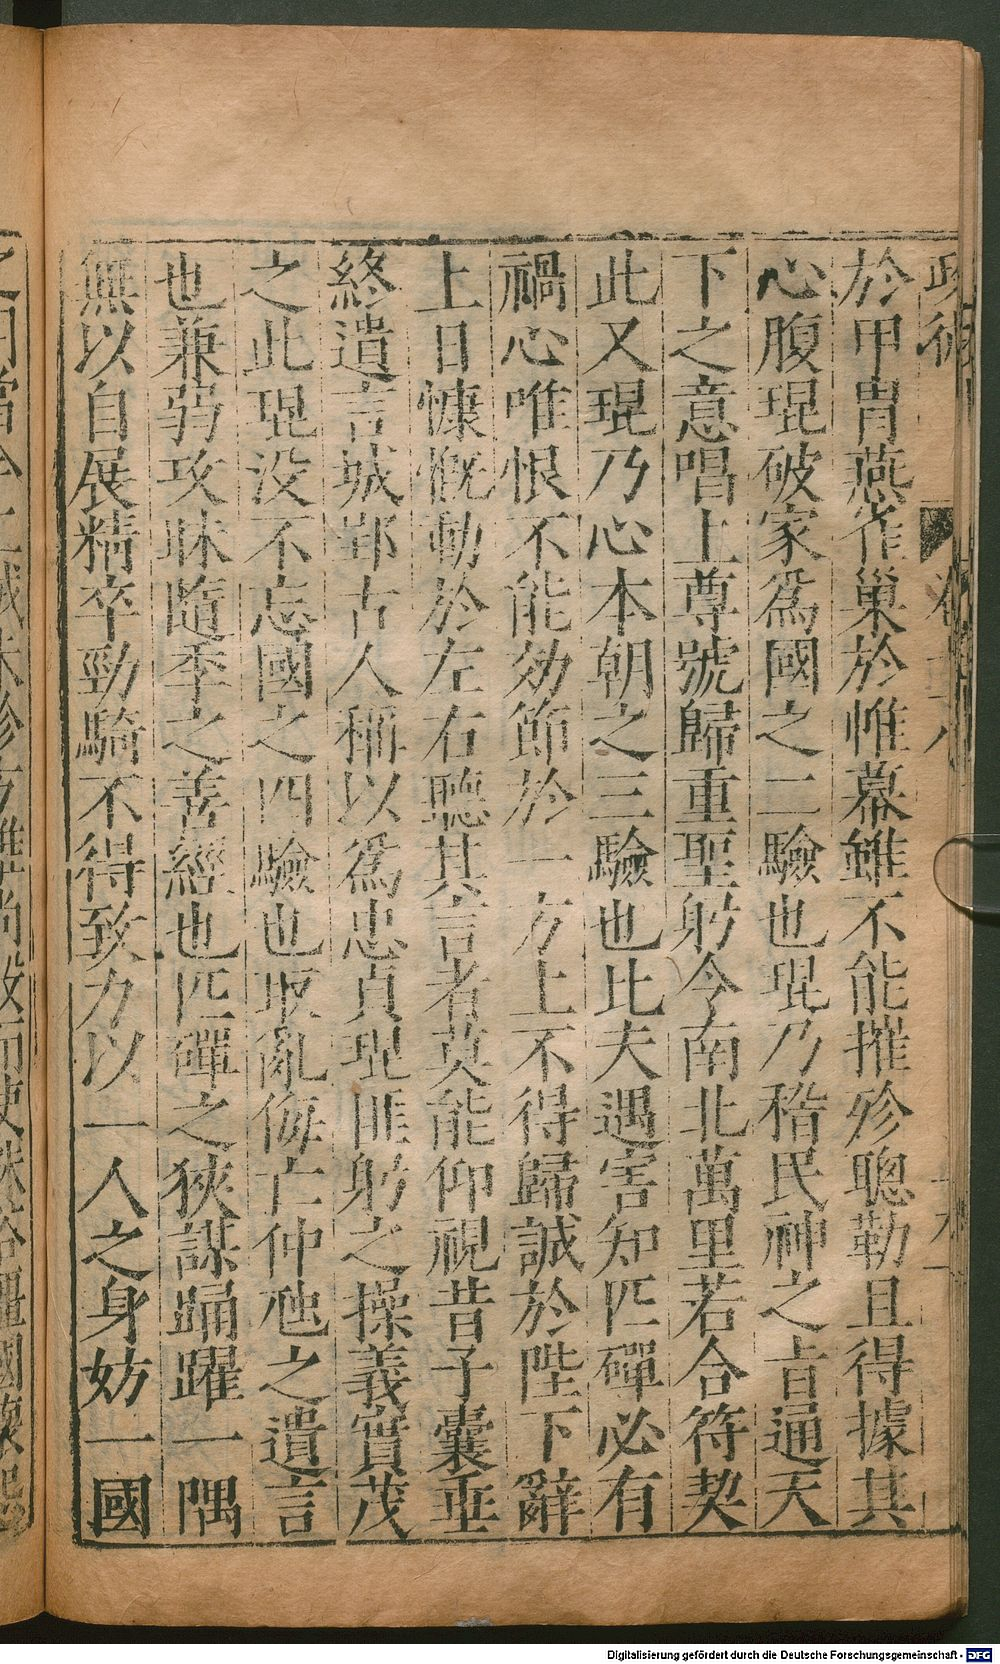 於甲胄燕雀巢於惟幕雖不能摧殄聰勒且得據其
心腹琨破家為國之二驗也琨乃稽民神之㫖通天
下之意唱上尊號歸重聖躬今南北萬里若合符契
此又琨乃心本朝之三驗也此夫遇害知匹磾必有
禍心唯恨不能効節於一方上不得歸誠於陛下辭
上日慷慨動於左右聽其言者莫能仰視昔子囊垂
終遺言城郢古人稱以為忠貞琨匪躬之操義實茂
之此琨没不忘國之四驗也取亂侮亡仲虺之遺言
也兼弱攻昧隨季之善經也匹磾之狹謀踊躍一隅
無以自展精卒勁騎不得致力以一人之身妨一國
Digitalisierung gefördert durch die Deutsche Forschungsgemeinschaft - DFG